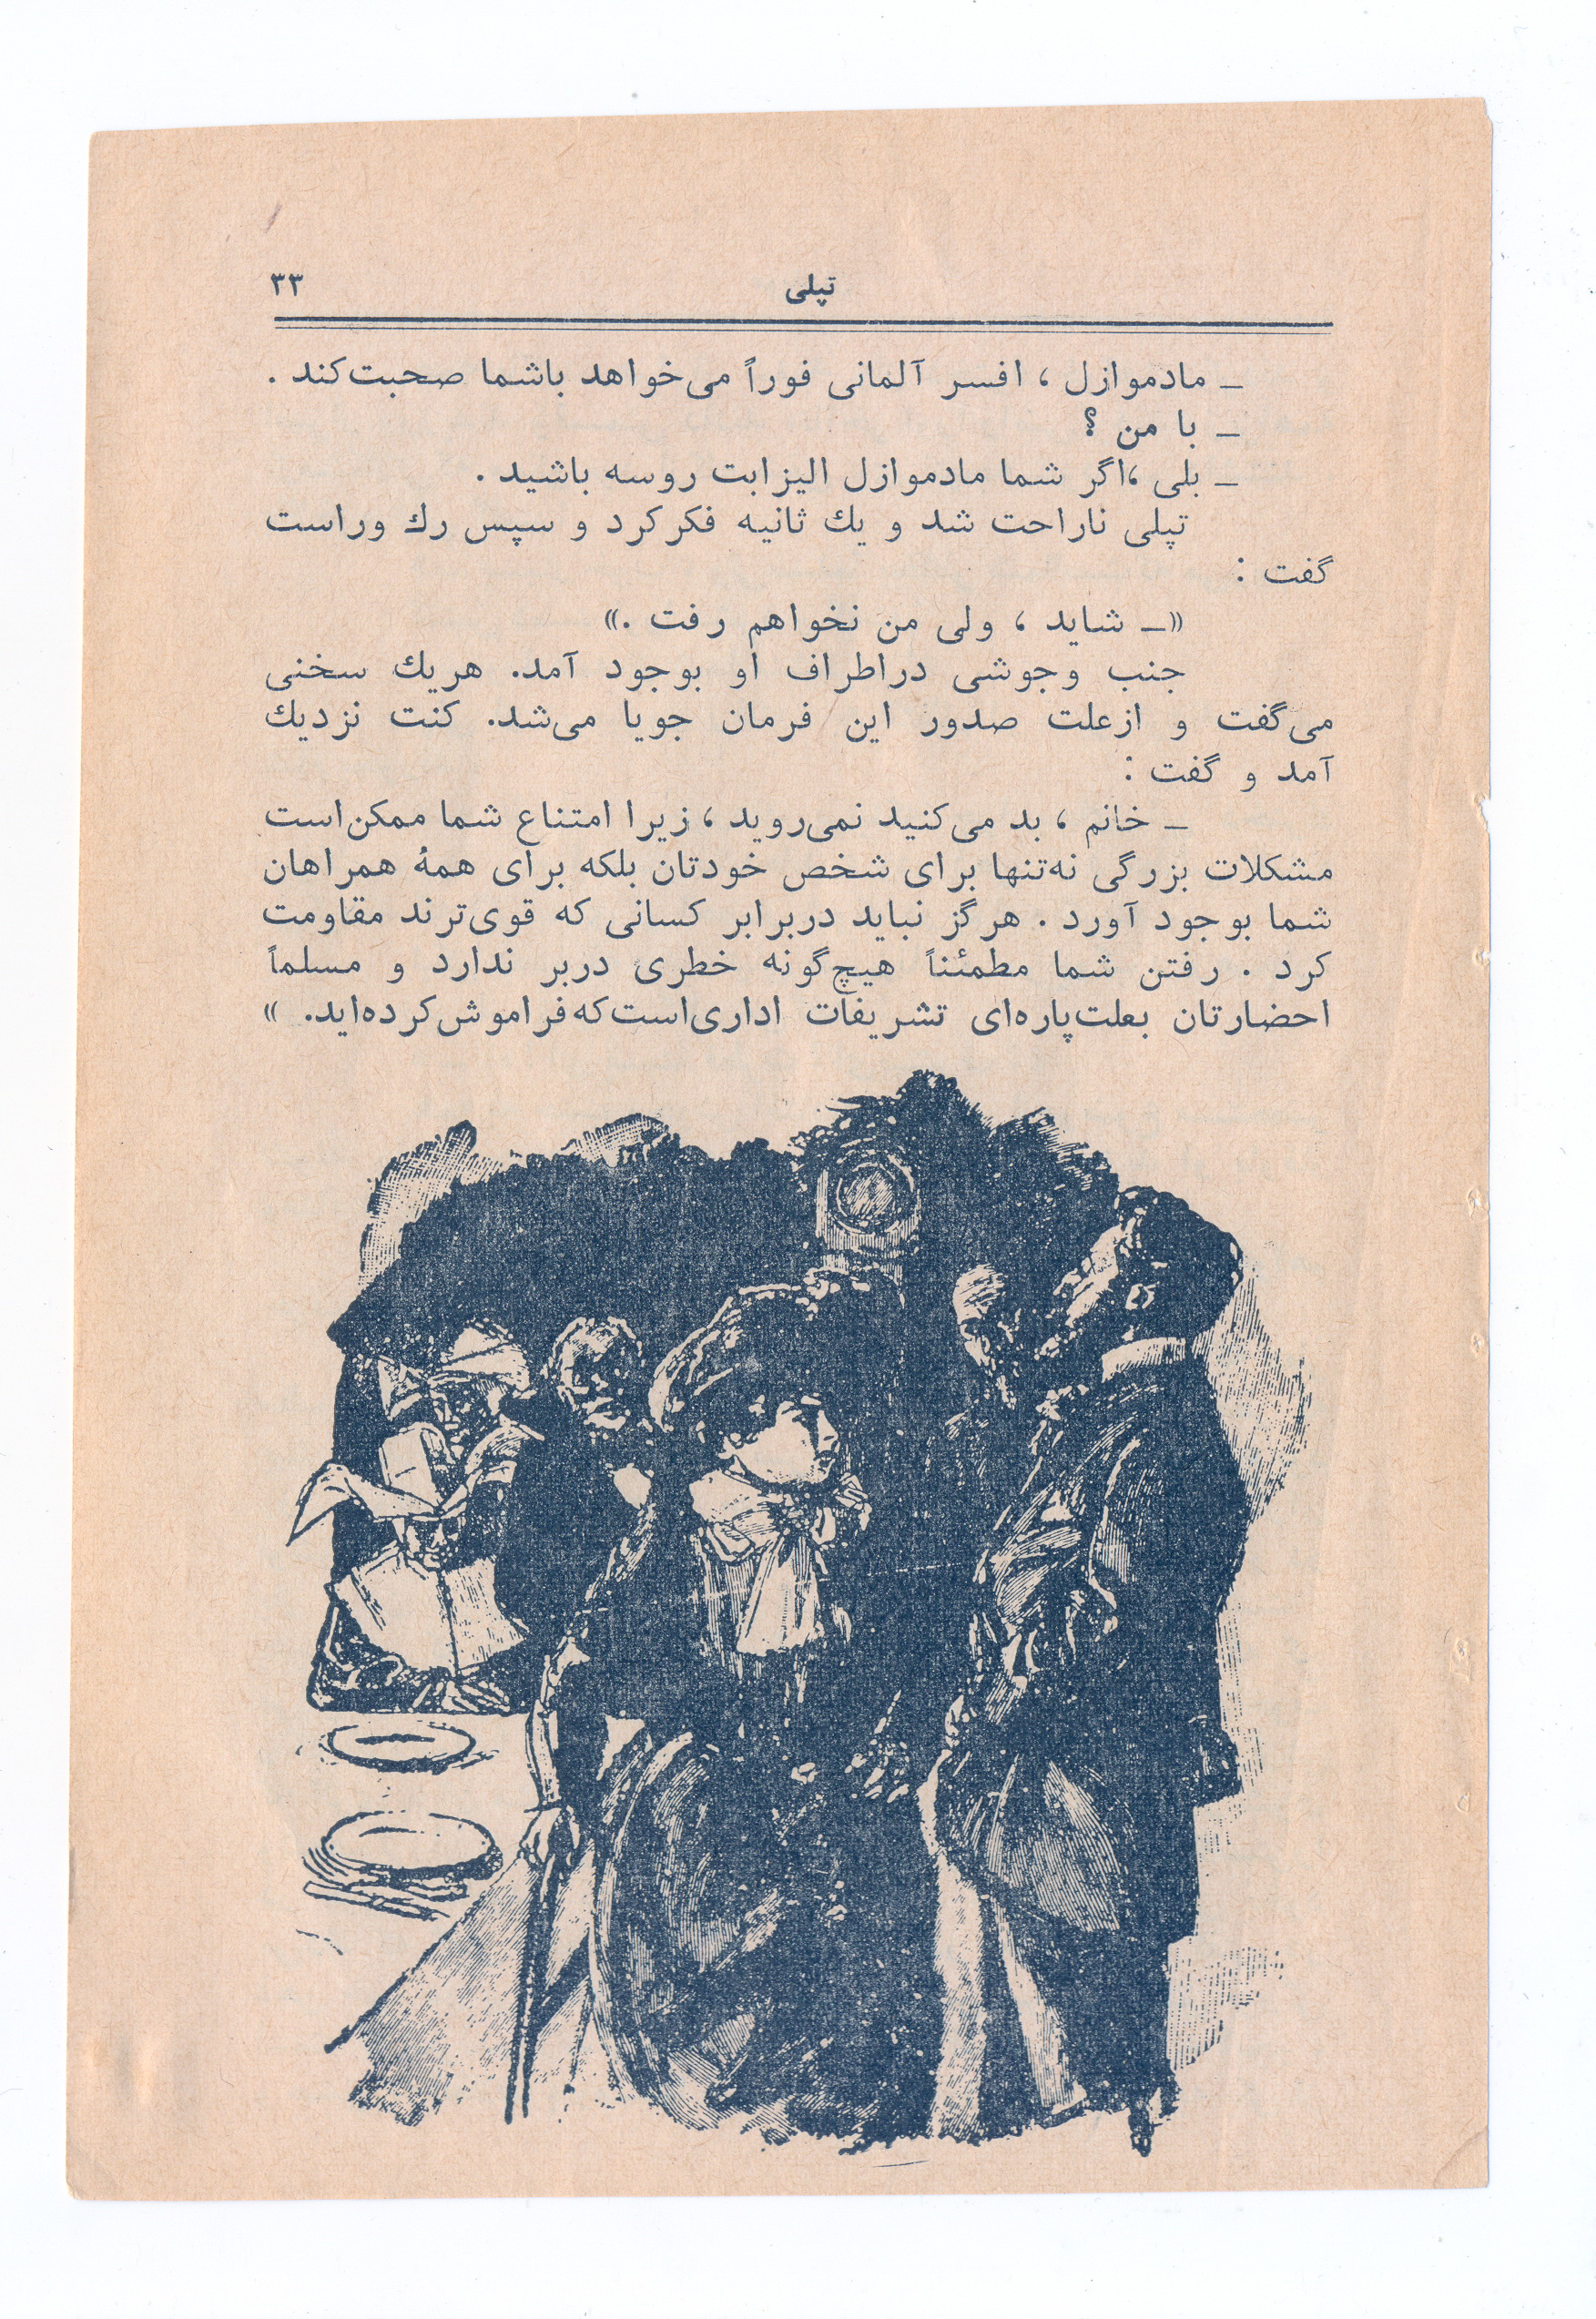 تپلی
۳۳
ــ مادموازل ، افسر آلمانی فوراً می‌خواهد باشما صحبت‌کند .
ــ با من ؟
ــ بلی ،اگر شما مادموازل الیزابت روسه باشید .
تپلی ناراحت شد و یك ثانیه فکر کرد و سپس رك وراست
گفت :
«ــ شاید ، ولی من نخواهم رفت .»
جنب وجوشی دراطراف او بوجود آمد. هریك سخنی
می‌گفت و ازعلت صدور این فرمان جویا می‌شد. کنت نزدیك
آمد و گفت :
ــ خانم ، بد می‌کنید نمی‌روید ، زیرا امتناع شما ممکن‌است
مشکلات بزرگی نه‌تنها برای شخص خودتان بلکه برای همهٔ همراهان
شما بوجود آورد . هرگز نباید دربرابر کسانی که قوی‌ترند مقاومت
کرد . رفتن شما مطمئناً هیچ‌گونه خطری دربر ندارد و مسلماً
احضارتان بعلت‌پاره‌ای تشریفات اداری‌است‌که‌فراموش‌کرده‌اید. »